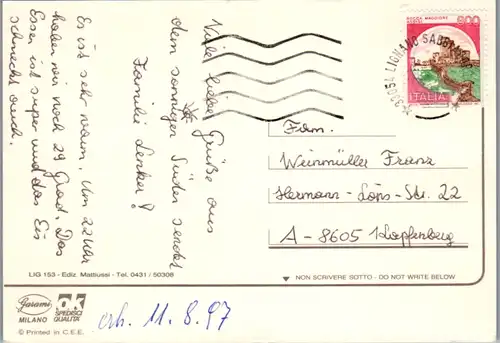 Viele liebe Grüße aus
dem sonnigen Süden sendet
Familie Lenker!
Es ist sehr warm. Um 22 Uhr
haben wir noch 29 Grad. Das
Essen ist super und das Eis
schmeckt auch.
ROCCA MAGGIORE
900
ITALIA
33054 LIGNANO SABB
Fam.
Weinmüller Franz
Hermann-Löns-Str. 22
A-8605 Kapfenberg
LIG 153 - Ediz. Mattiussi - Tel. 0431 / 50308
NON SCRIVERE SOTTO - DO NOT WRITE BELOW
Garami
MILANO
OK
SPEDISCI
QUALITA'
© Printed in C.E.E.
erh. 11.8.97